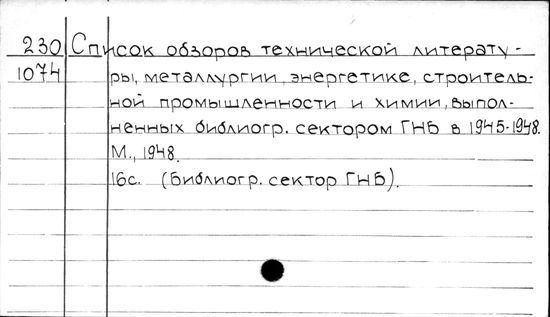 230 Список обзоров технической литерату-
1074 ры, металлургии, энергетике, строитель-
ной промышленности и химии, выпол-
ненных библиогр. сектором ГНБ в 1945-1948.
М., 1948.
16с. (Библиогр. сектор ГНБ).